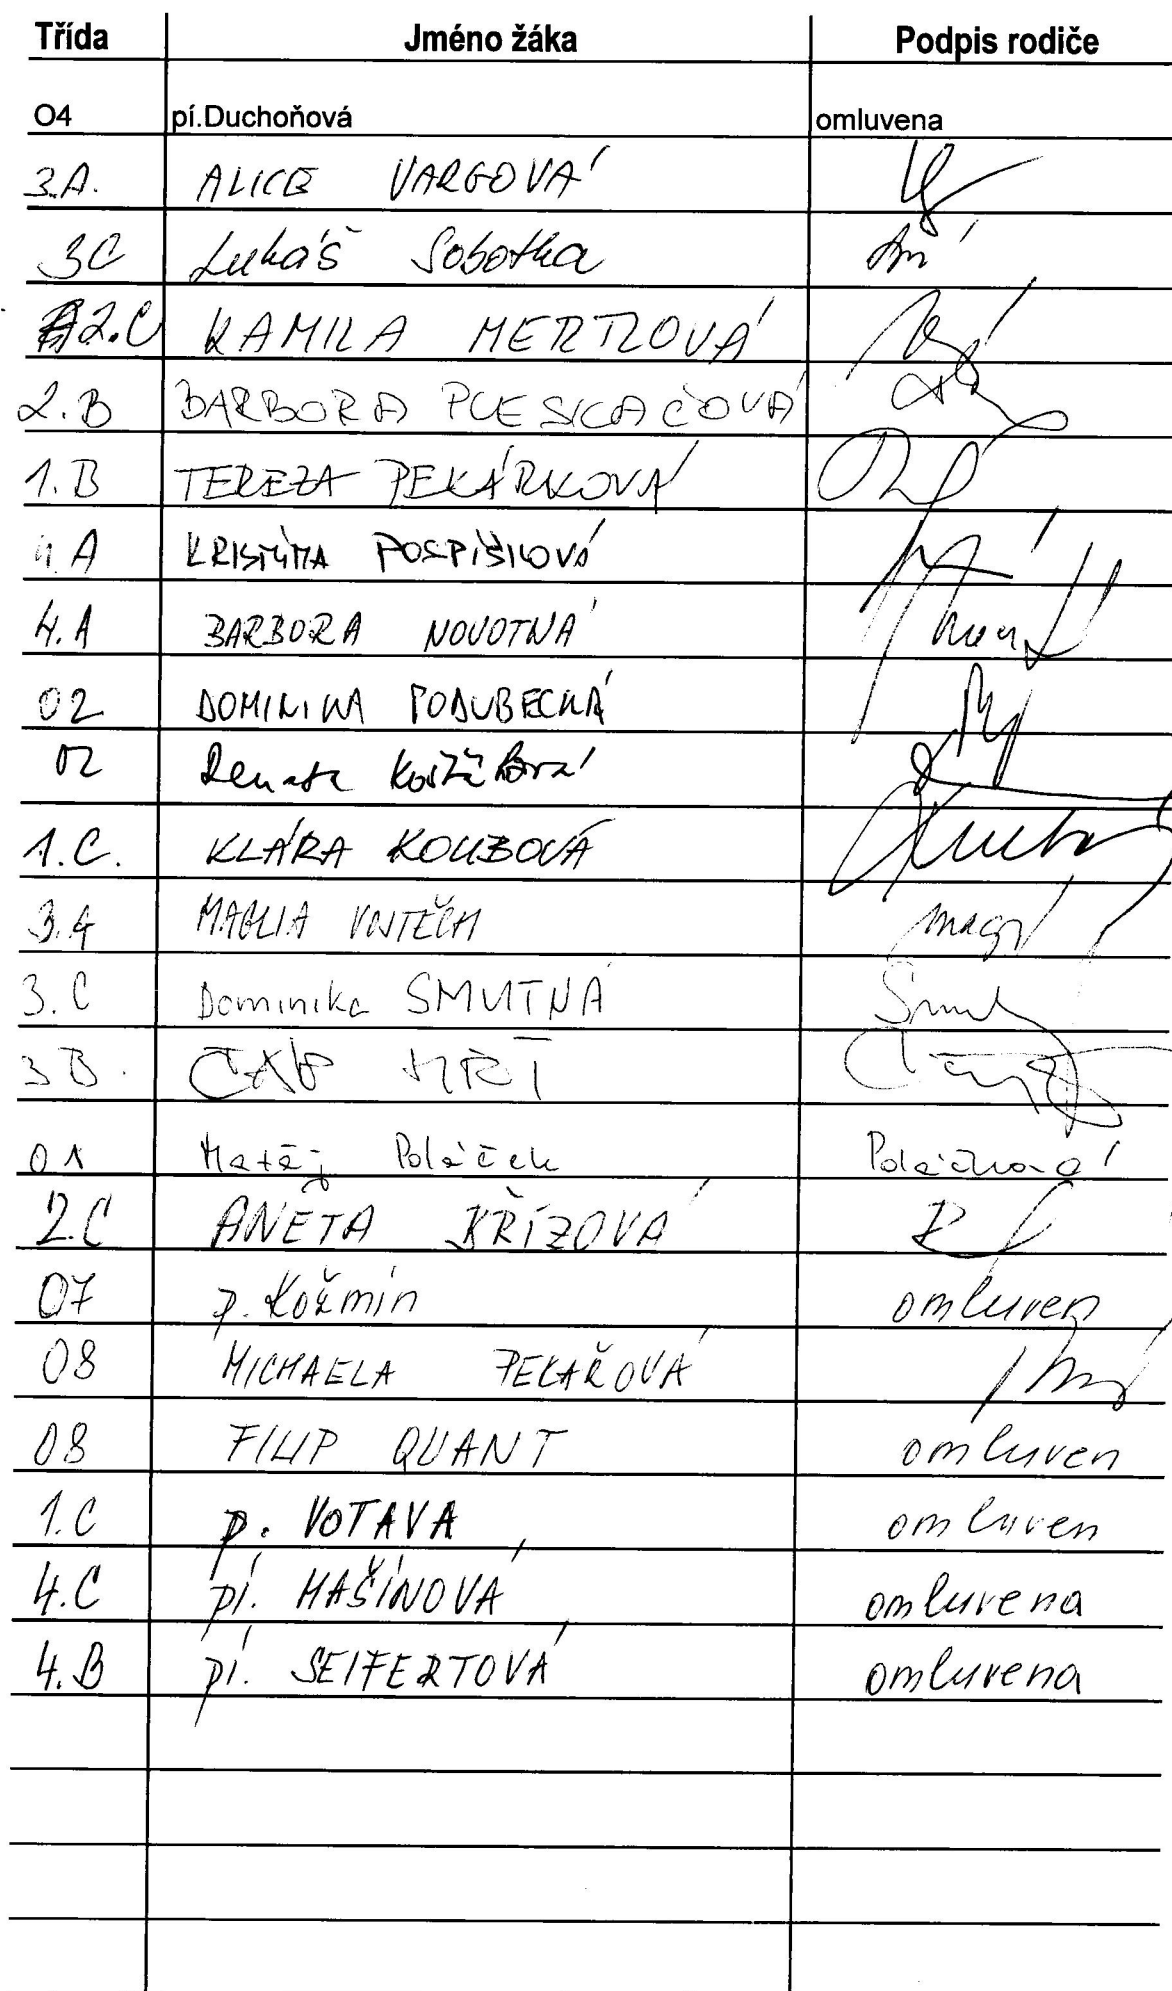 Třída Jméno žáka Podpis rodiče
O4 pí.Duchoňová omluvena
3.A. ALICE VARGOVÁ
3C Lukáš Sobotka
2.C KAMILA MERTLOVÁ
2.B BARBORA PLESKAČOVÁ
1.B TEREZA PEKÁRKOVÁ
4.A KRISTÝNA POSPÍŠILOVÁ
4.A BARBORA NOVOTNÁ
02 DOMINIKA PODUBECKÁ
02 Renata
1.C. KLÁRA KOUBOVÁ
MAGLIA VOJTĚCH
3.C Dominika SMUTNÁ
3B. ČÁP
01 Matěj Poláček Poláčková
2.C ANETA KŘÍZOVÁ
07 p. Kožmín omluven
08 MICHAELA PEKAŘOVÁ
08 FILIP QUANT omluven
1.C p. VOTAVA omluven
4.C pí. MAŠÍNOVÁ omluvena
4.B pí. SEIFERTOVÁ omluvena